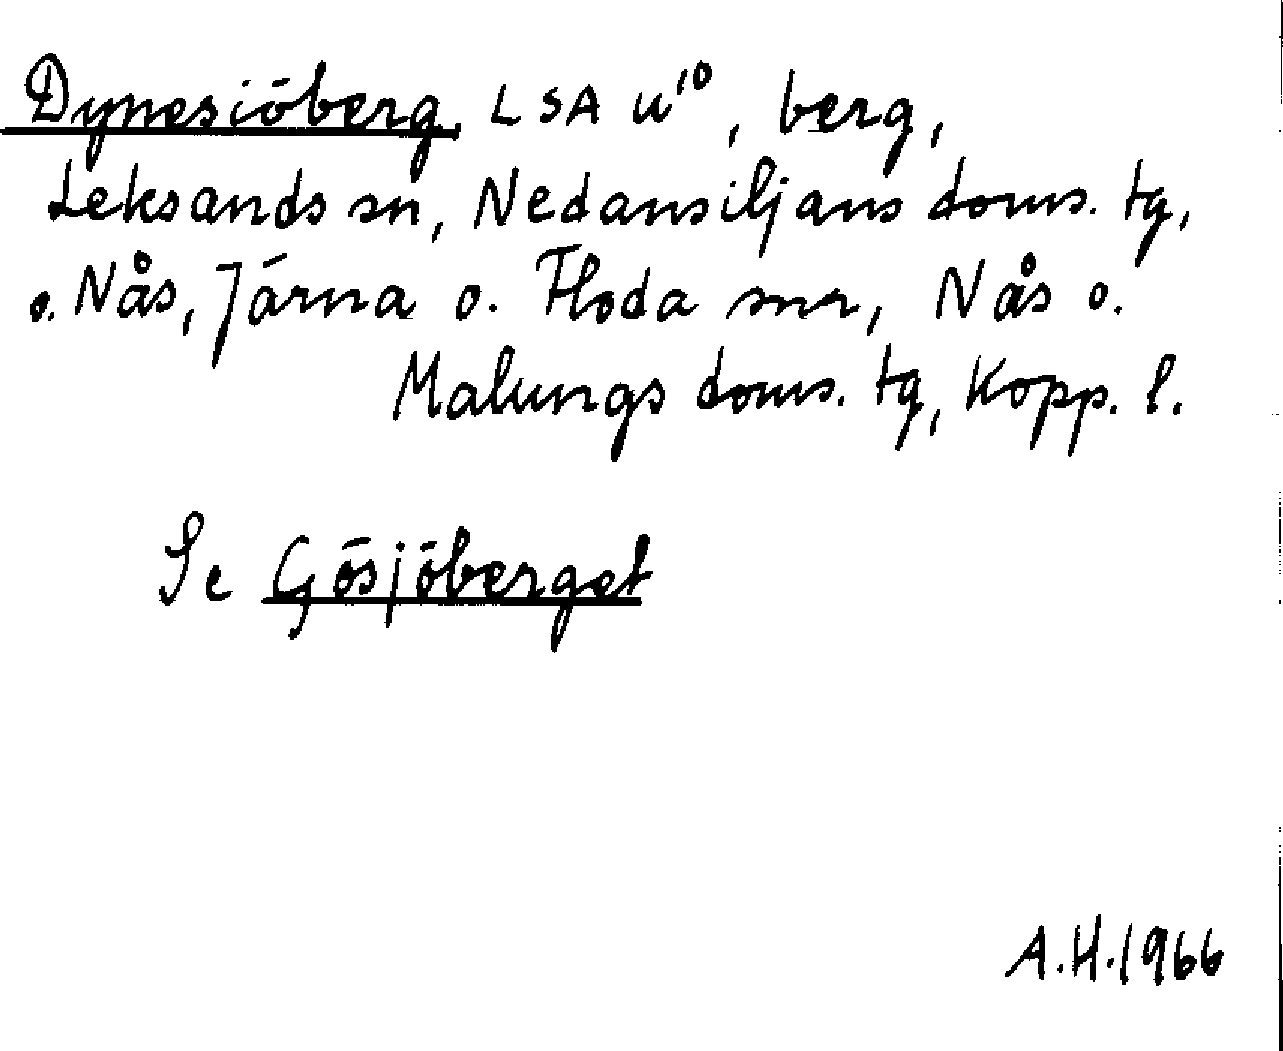 Dynesiöberg, LSA U¹⁰, berg,
Leksands sn, Nedansiljans doms. tg,
o. Nås, Järna o. Floda snr, Nås o.
Malungs doms. tg, Kopp. l.
Se Gösjöberget
A.H.1966